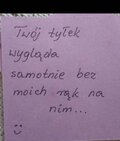 Twój tyłek
wygląda
samotnie bez
moich rąk na
nim...
:)